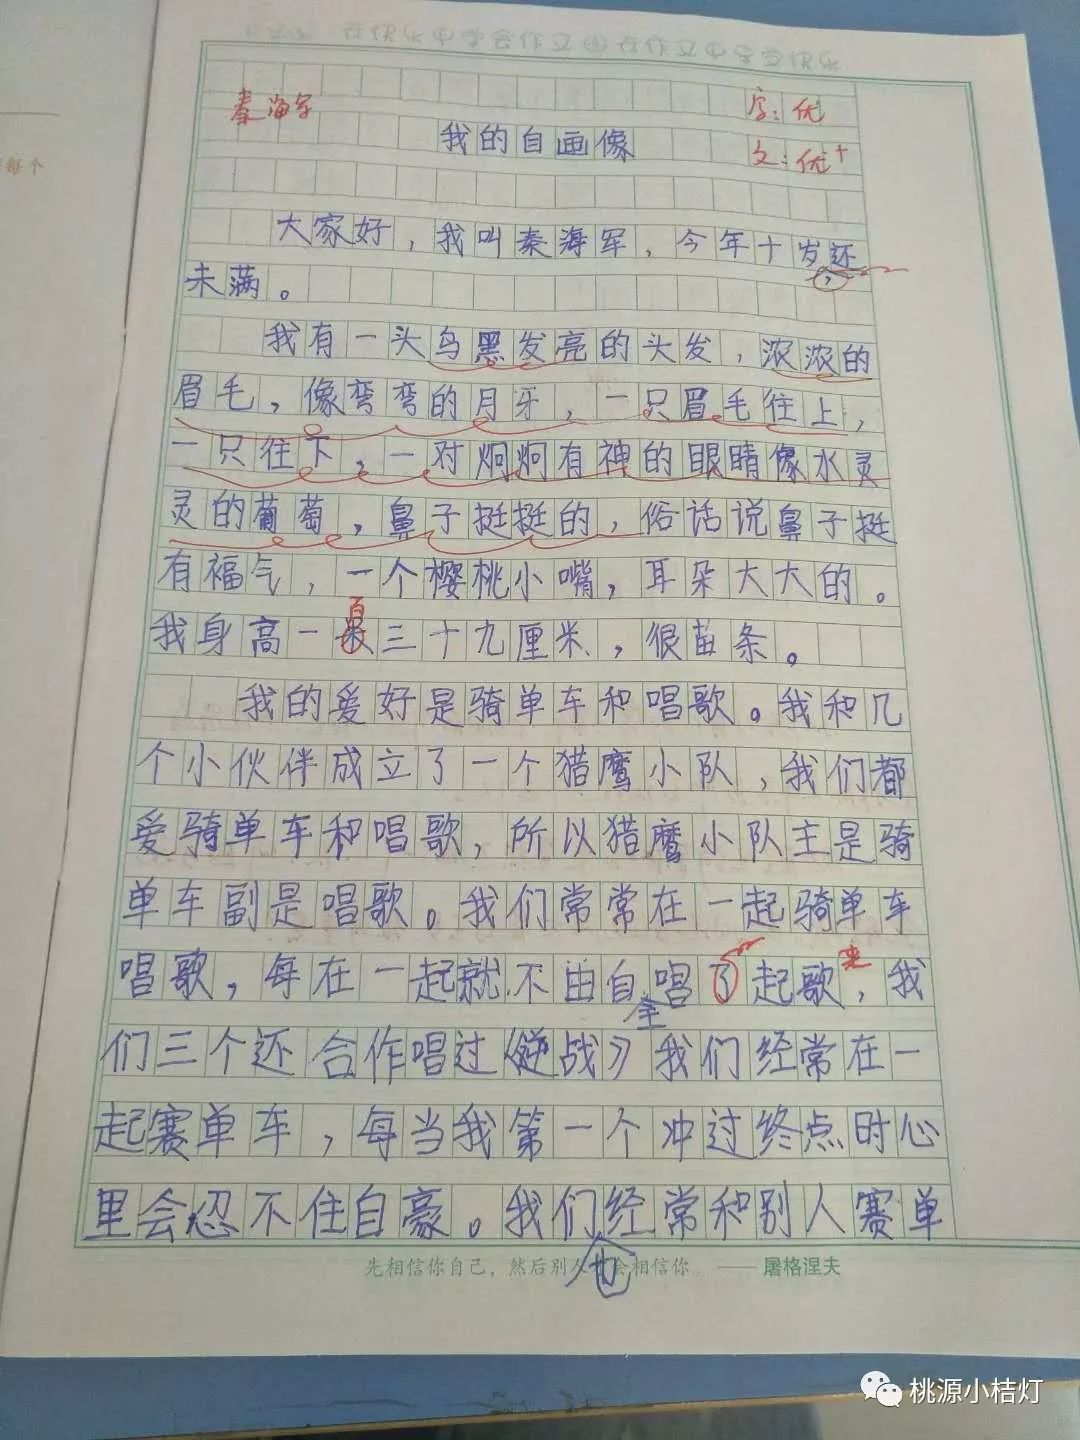 秦海军
字：优
我的自画像
文：优+
大家好，我叫秦海军，今年十岁还
未满。
我有一头乌黑发亮的头发，浓浓的
眉毛，像弯弯的月牙，一只眉毛往上，
一只往下，一对炯炯有神的眼睛像水灵
灵的葡萄，鼻子挺挺的，俗话说鼻子挺
有福气，一个樱桃小嘴，耳朵大大的。
我身高一百三十九厘米，很苗条。
我的爱好是骑单车和唱歌。我和几
个小伙伴成立了一个猎鹰小队，我们都
爱骑单车和唱歌，所以猎鹰小队主是骑
单车副是唱歌。我们常常在一起骑单车
唱歌，每在一起就不由自主唱了起歌来，我
们三个还合作唱过《逆战》我们经常在一
起赛单车，每当我第一个冲过终点时心
里会忍不住自豪。我们也经常和别人赛单
先相信你自己，然后别人会相信你。——屠格涅夫
桃源小桔灯